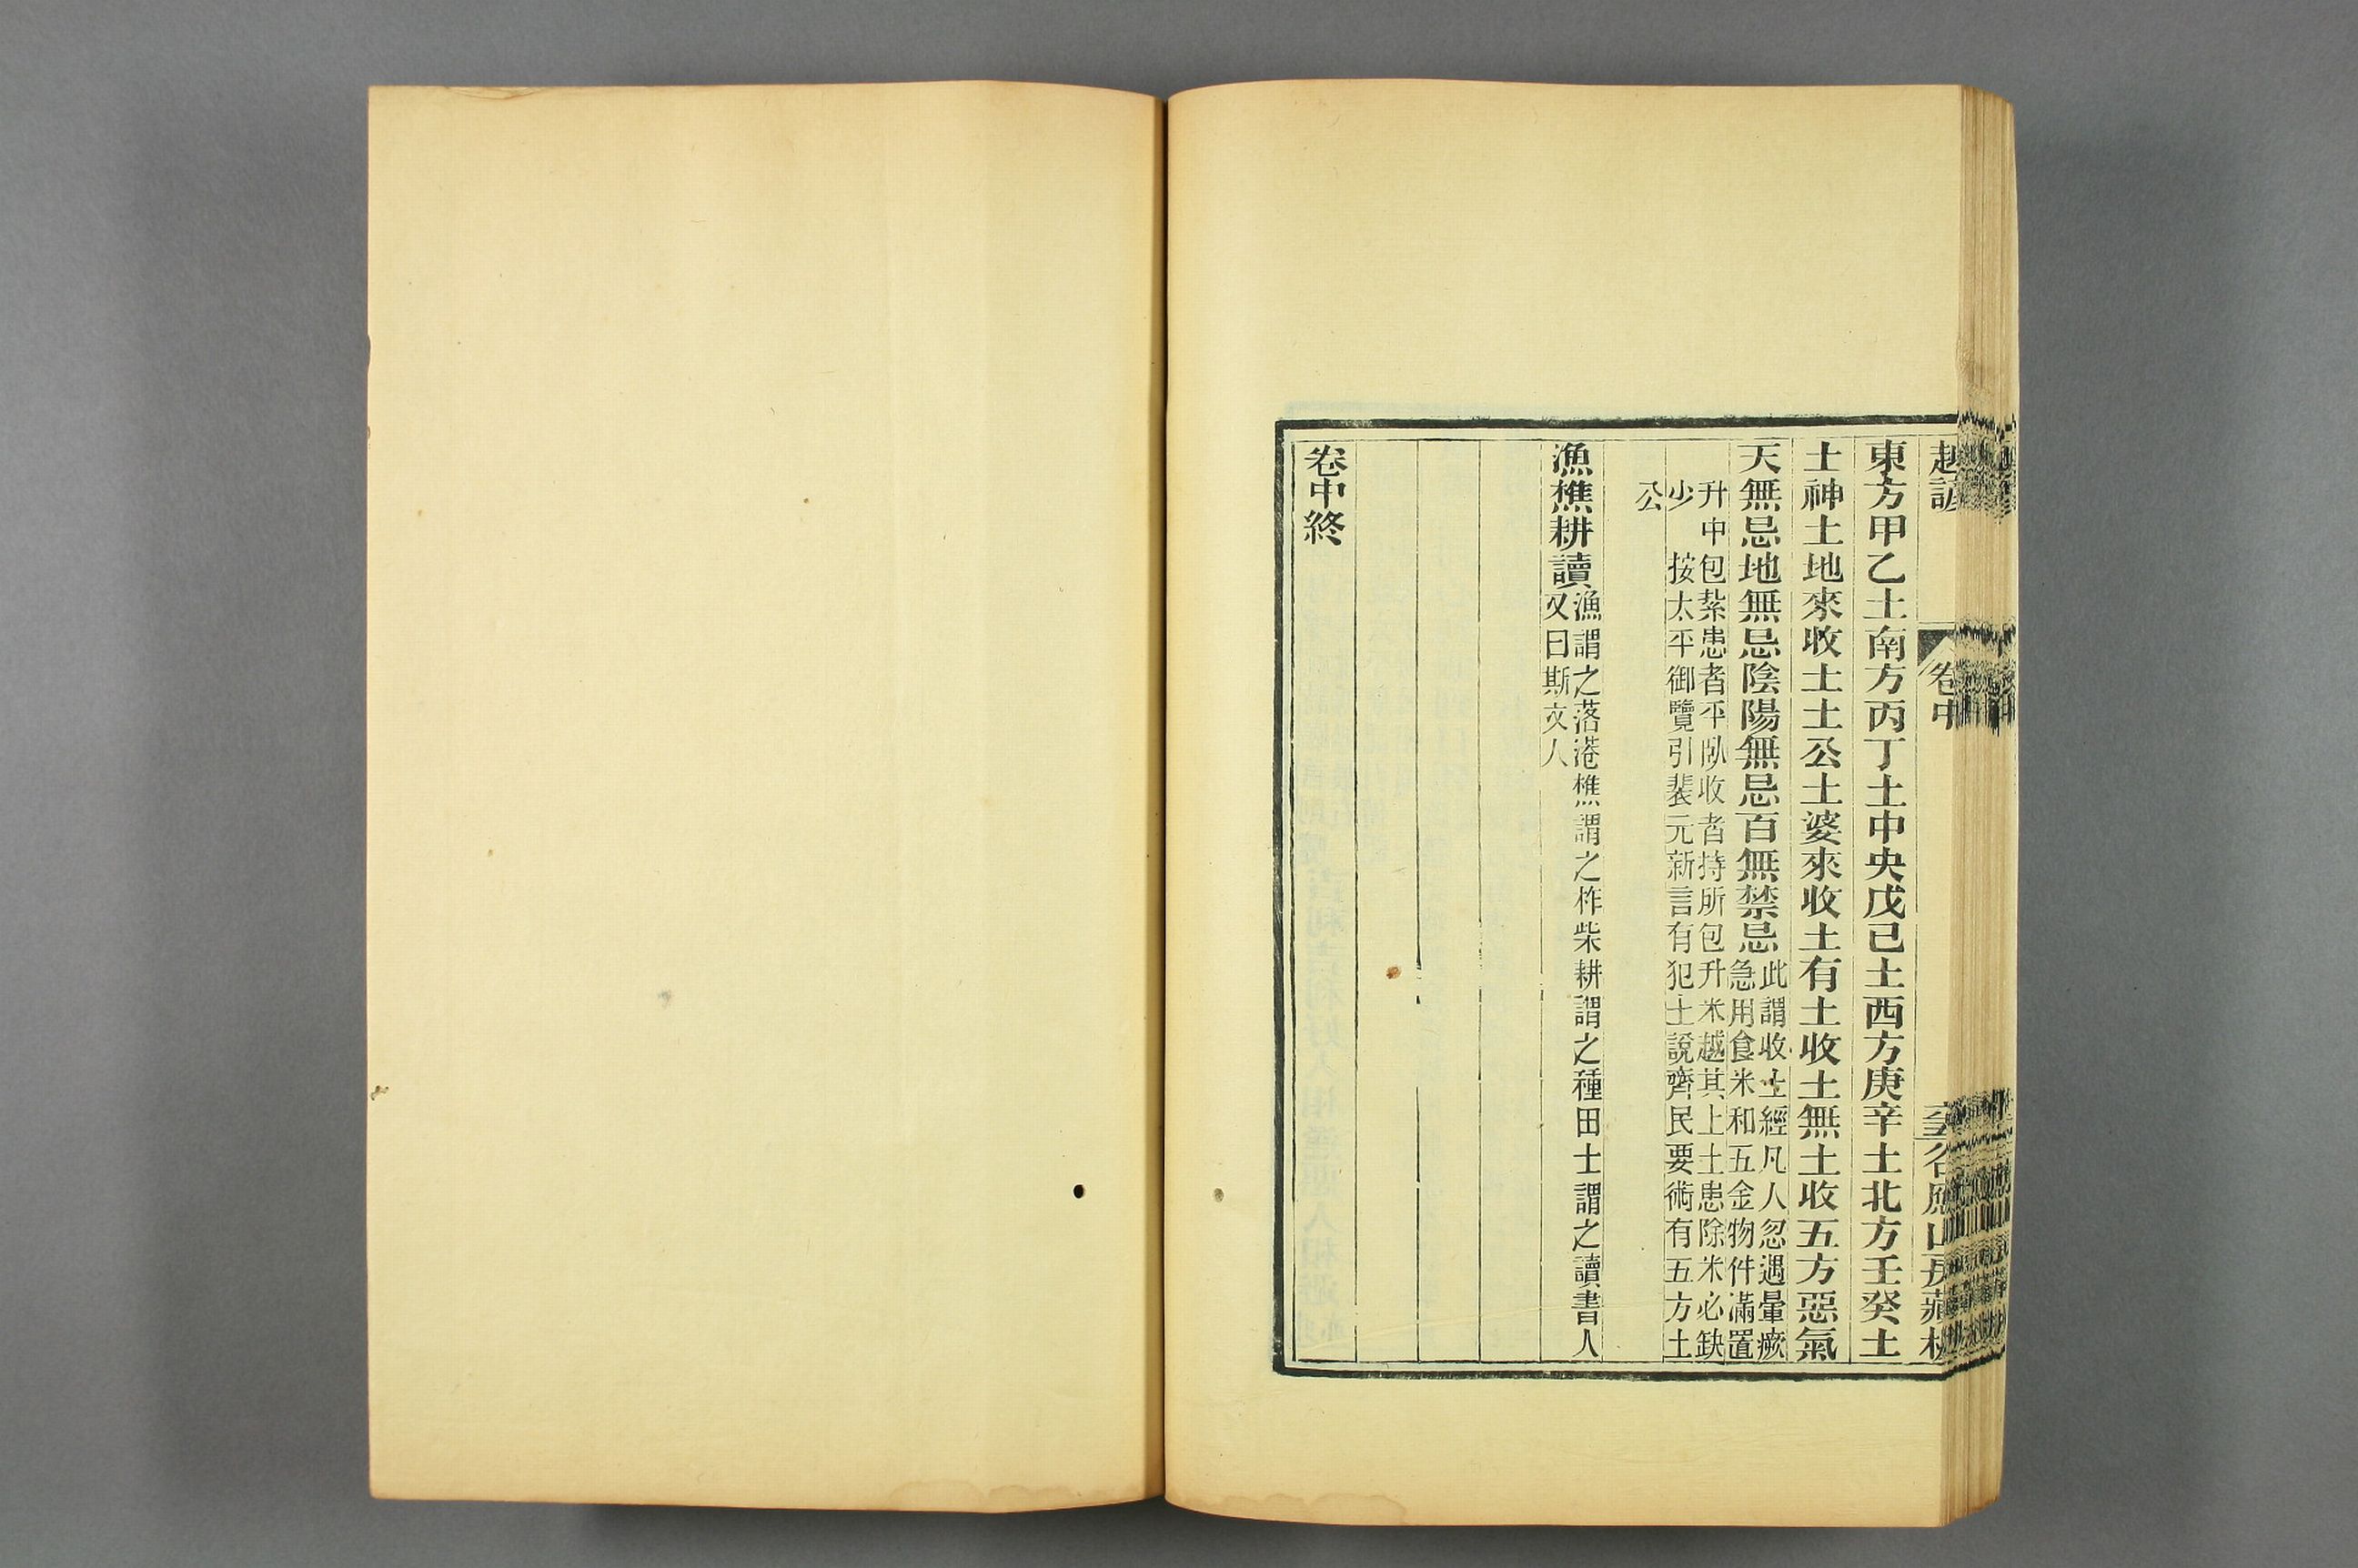 越諺
卷中
東方甲乙土南方丙丁土中央戊己土西方庚辛土北方壬癸土
土神土地來收土土公土婆來收土有土收土無土收五方惡氣
天無忌地無忌陰陽無忌百無禁忌
此謂收土經凡人忽遇暈瘚
急用食米和五金物件滿置
升中包紮患者平臥收者持所包升米越其上土患除米必缺
少 按太平御覽引裴元新言有犯土說齊民要術有五方土
公
漁樵耕讀
漁謂之落港樵謂之柞柴耕謂之種田士謂之讀書人
又曰斯文人
卷中終